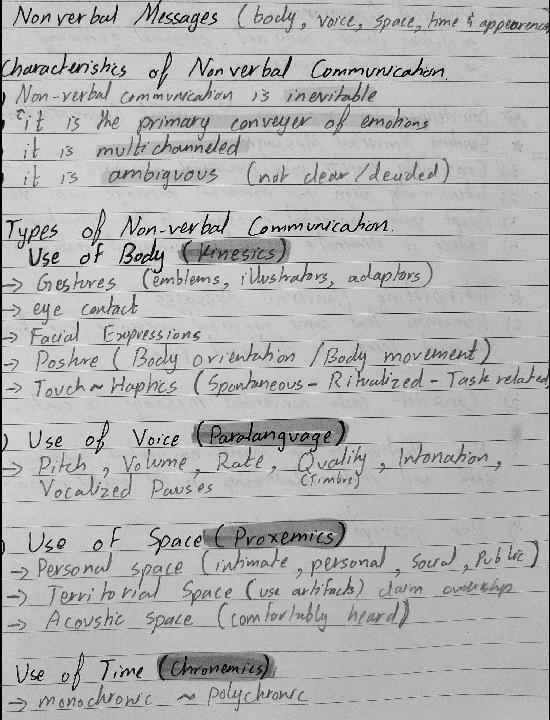 Nonverbal Messages (body, voice, space, time & appearence
Characteristics of Nonverbal Communication.
) Non-verbal communication is inevitable
it is the primary conveyer of emotions
it is multichanneled
it is ambiguous (not clear/decided)
Types of Non-verbal Communication.
Use of Body (Kinesics)
→ Gestures (emblems, illustrators, adaptors)
→ eye contact
→ Facial Expressions
→ Posture (Body orientation / Body movement)
→ Touch ~ Haptics (Spontaneous - Ritualized - Task related)
) Use of Voice (Paralanguage)
→ Pitch, Volume, Rate, Quality, Intonation,
(Timbre)
Vocalized Pauses
) Use of Space (Proxemics)
→ Personal space (intimate, personal, social, Public)
→ Territorial Space (use artifacts) claim ownership
→ Acoustic space (comfortably heard)
Use of Time (Chronemics)
→ monochronic ~ polychronic